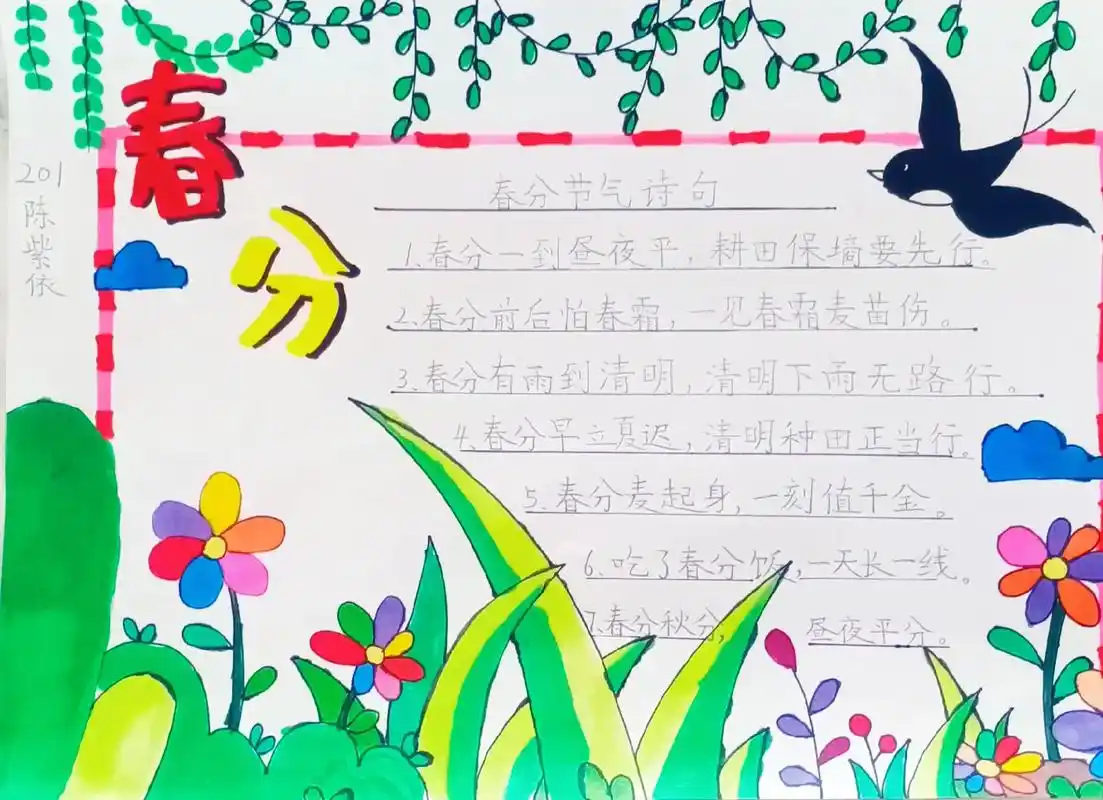 春分
201
陈紫依
春分节气诗句
1.春分一到昼夜平,耕田保墒要先行。
2.春分前后怕春霜,一见春霜麦苗伤。
3.春分有雨到清明,清明下雨无路行。
4.春分早立夏迟,清明种田正当行。
5.春分麦起身,一刻值千金。
6.吃了春分饭,一天长一线。
7.春分秋分,昼夜平分。